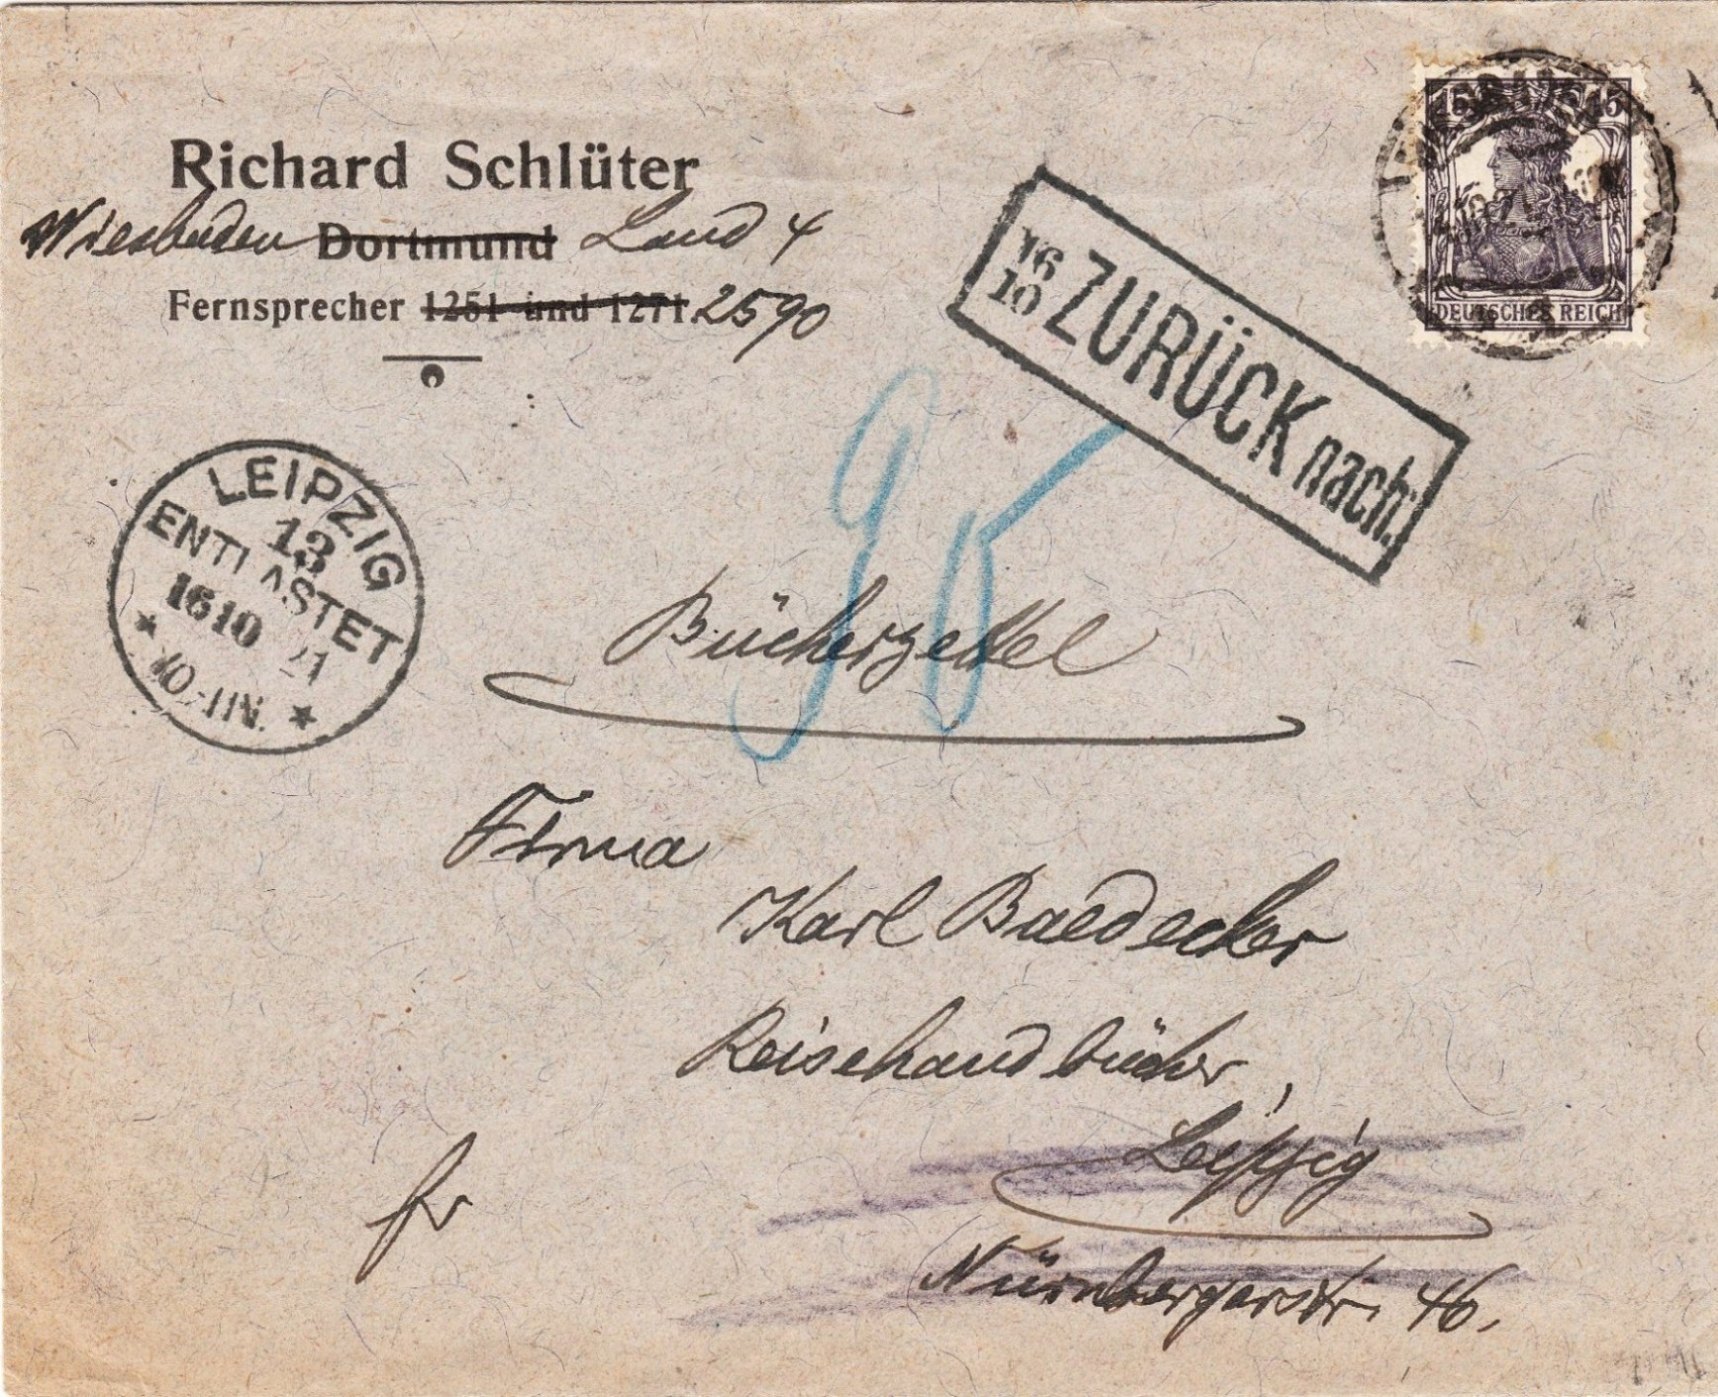 Richard Schlüter
Wiesbaden Dortmund Land 4
Fernsprecher 1251 und 1271. 2590
15 15
DEUTSCHES REICH
16
10 ZURÜCK nach:
LEIPZIG
13
ENTLASTET
16 10 21
10-11V.
Bücherzettel
Firma
Karl Baedecker
Reisehandbücher,
Leipzig
Nürnbergerstr. 46.